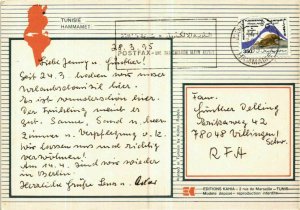 TUNISIE
HAMMAMET
POSTFAX
28.3.95
Liebe Jenny u. Günther!
Seit 24.3. haben wir unser
Urlaubsdomizil hier.
Es ist wunderschön hier.
Der Frühling meint es
gut. Sonne, Sand u. Meer
Zimmer u. Verpflegung o.k.
Wir lassen uns mal richtig
verwöhnen!
Am 14.4. sind wir wieder
in Berlin.
Herzliche Grüße
Fam.
Günther Delling
78048 Villingen/
Schw.
RFA
EDITIONS KAHIA - 2 rue de Marseille - TUNIS
Modèle déposé - reproduction interdite